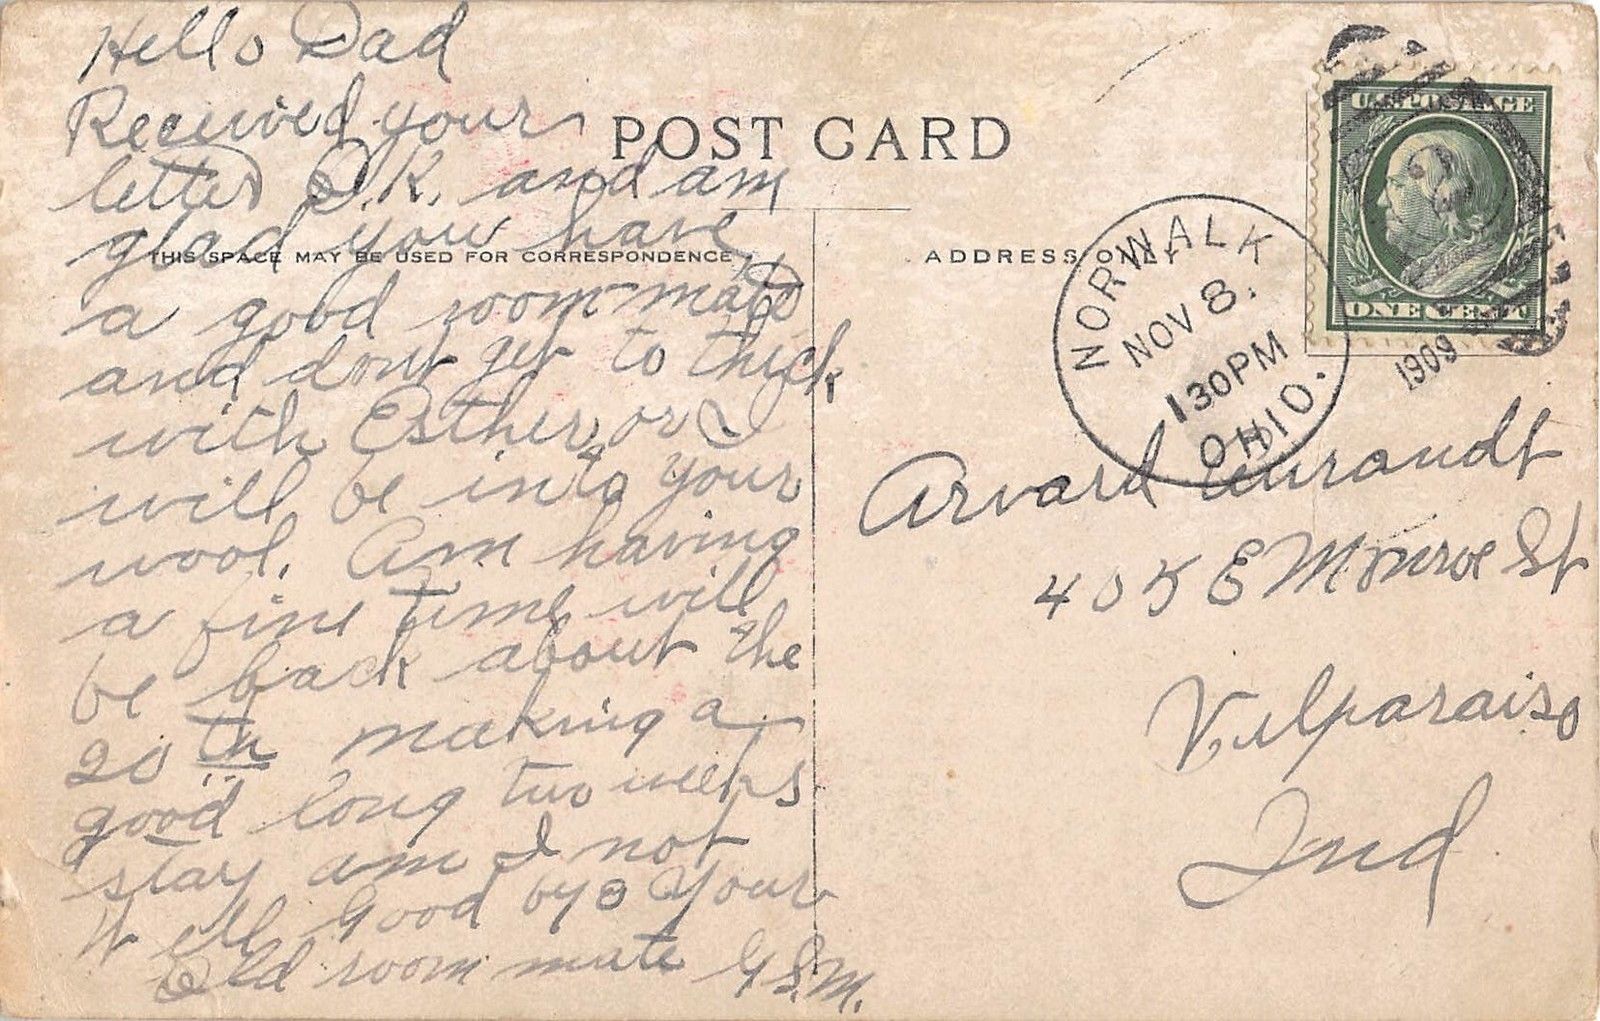 Hello Dad
Received your
letter O.K. and am
glad you have
a good room mate
and dont get to thick
with Esther or I
will be into your
wool. Am having
a fine time will
be back about the
20th making a
good long two weeks
stay am I not
Well Good bye Your
Old room mate G.S.M.
POST CARD
THIS SPACE MAY BE USED FOR CORRESPONDENCE
ADDRESS ONLY
U.S. POSTAGE
ONE CENT
NORWALK
NOV 8.
130PM
OHIO.
1909
Arvard
405 E Monroe St
Valparaiso
Ind